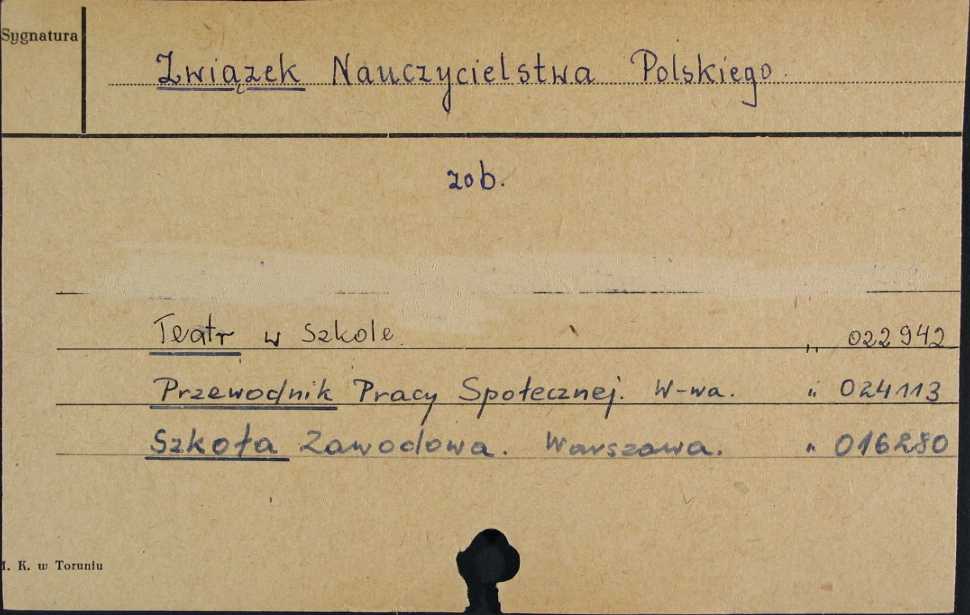 Sygnatura
Związek Nauczycielstwa Polskiego.
zob.
Teatr w Szkole. " 022942
Przewodnik Pracy Społecznej. W-wa. " 024113
Szkoła Zawodowa. Warszawa. " 016280
K. w Toruniu